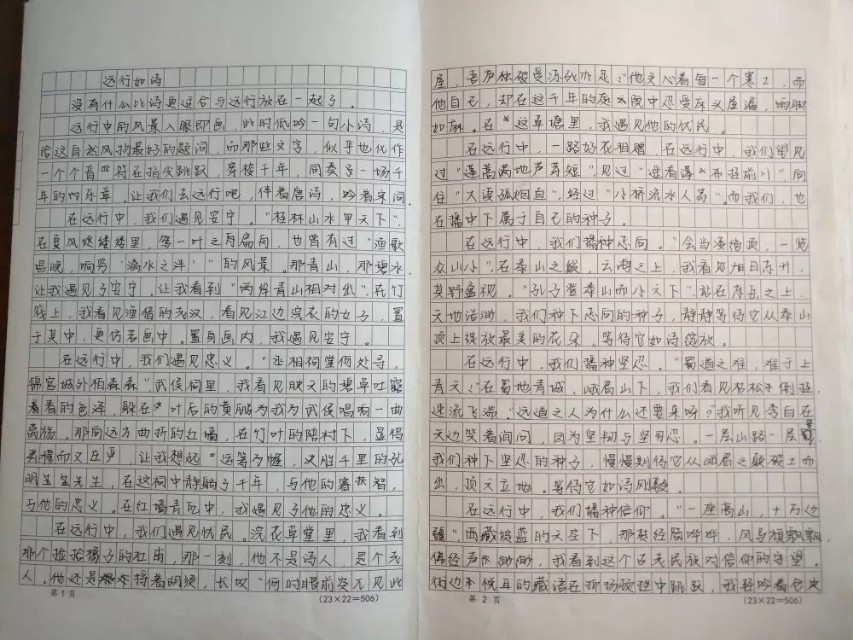 远行如诗
没有什么比诗更适合与远行放在一起了。
远行中的风景入眼即画,此时低吟一句小诗,是
给这自然风物最好的题词。而那些文字,似乎也化作
一个个音符在指尖跳跃,穿梭千年,同奏了一场千
年的乐章。让我们去远行吧,伴着唐诗,吟着宋词。
在远行中,我们遇见安宁。“桂林山水甲天下”,
在夏风里,驾一叶之扁舟,也曾有过“渔歌
唱晚,响穷”的风景。那青山,那碧水,
让我遇见了安宁,让我看到“两岸青山相对出”。在竹
筏上,我看见渔倡的老汉,看见江边浣衣的女子,置
于其中,更仿若画中。置身画内,我遇见安宁。
在远行中,我们遇见忠义。“丞相祠堂何处寻,
锦官城外柏森森”武侯祠里,我看见映天的碧草吐露
着春的色泽,躲在叶后的黄鹂为我为武侯唱响一曲
。那向远方曲折的红墙,在竹叶的陪衬下,显得
而又庄。让我想起“运筹帷幄,决胜千里的孔
明先生,在这祠中静躺了千年,与他的睿智,
与他的忠义。在红墙青瓦中,我遇见了他的忠义。
在远行中,我们遇见忧民。浣花草堂里,我看到
那个捡拾稻子的杜甫,那一刻,他不是诗人,是个老
人。他还是捋着胡须,长叹“何时眼前突兀见此
屋,吾庐独破受冻死亦足”他关心着每一个寒士,而
他自己,却在这千年的庭院中忍受床头屋漏,雨脚
如麻。在这草塘里,我遇见他的忧民。
在远行中,一路好花相赠。在远行中,我们望见
过“篷蒿满地芦芽短”见过“遥看瀑布挂前川”,同
住“大漠孤烟直”,经过“小桥流水人家”。而我们,也
在播中下属于自己的种子。
在远行中,我们播种志向。“会当凌绝顶,一览
众山小”。在泰山之巅,云海之上,我看见旭日东升,
莫野盛视。“孔子登泰山而小天下”。站在东岳之上,
天地浩渺,我们种下志向的种子,静静等待它从泰山
顶上绽放最美的花朵。等待它如诗绽放。
在远行中,我们播种坚忍。“蜀道之难,难于上
青天”在蜀地青城,峨眉山下,我们看见枯松倒挂,
迸流飞湍。“远道之人为什么还要来呀?”我听见李白在
天边笑着询问,因为坚韧与坚忍。一层山路一层
我们种下坚忍的种子,慢慢期待它从峨眉之巅破土而
出,顶天立地。等待它如诗风
在远行中,我们播种信仰。“一座高山,十万边
疆”。西藏绽蓝的天空下,那转经筒哗哗,风马旗飘飘。
佛经声渺渺,我看到这个古老民族对信仰的守望。
街边悦耳的藏语在耶场顿廷中跳跃,我轻吟着仓央
第1页
(23×22=506)
第2页
(23×22=506)